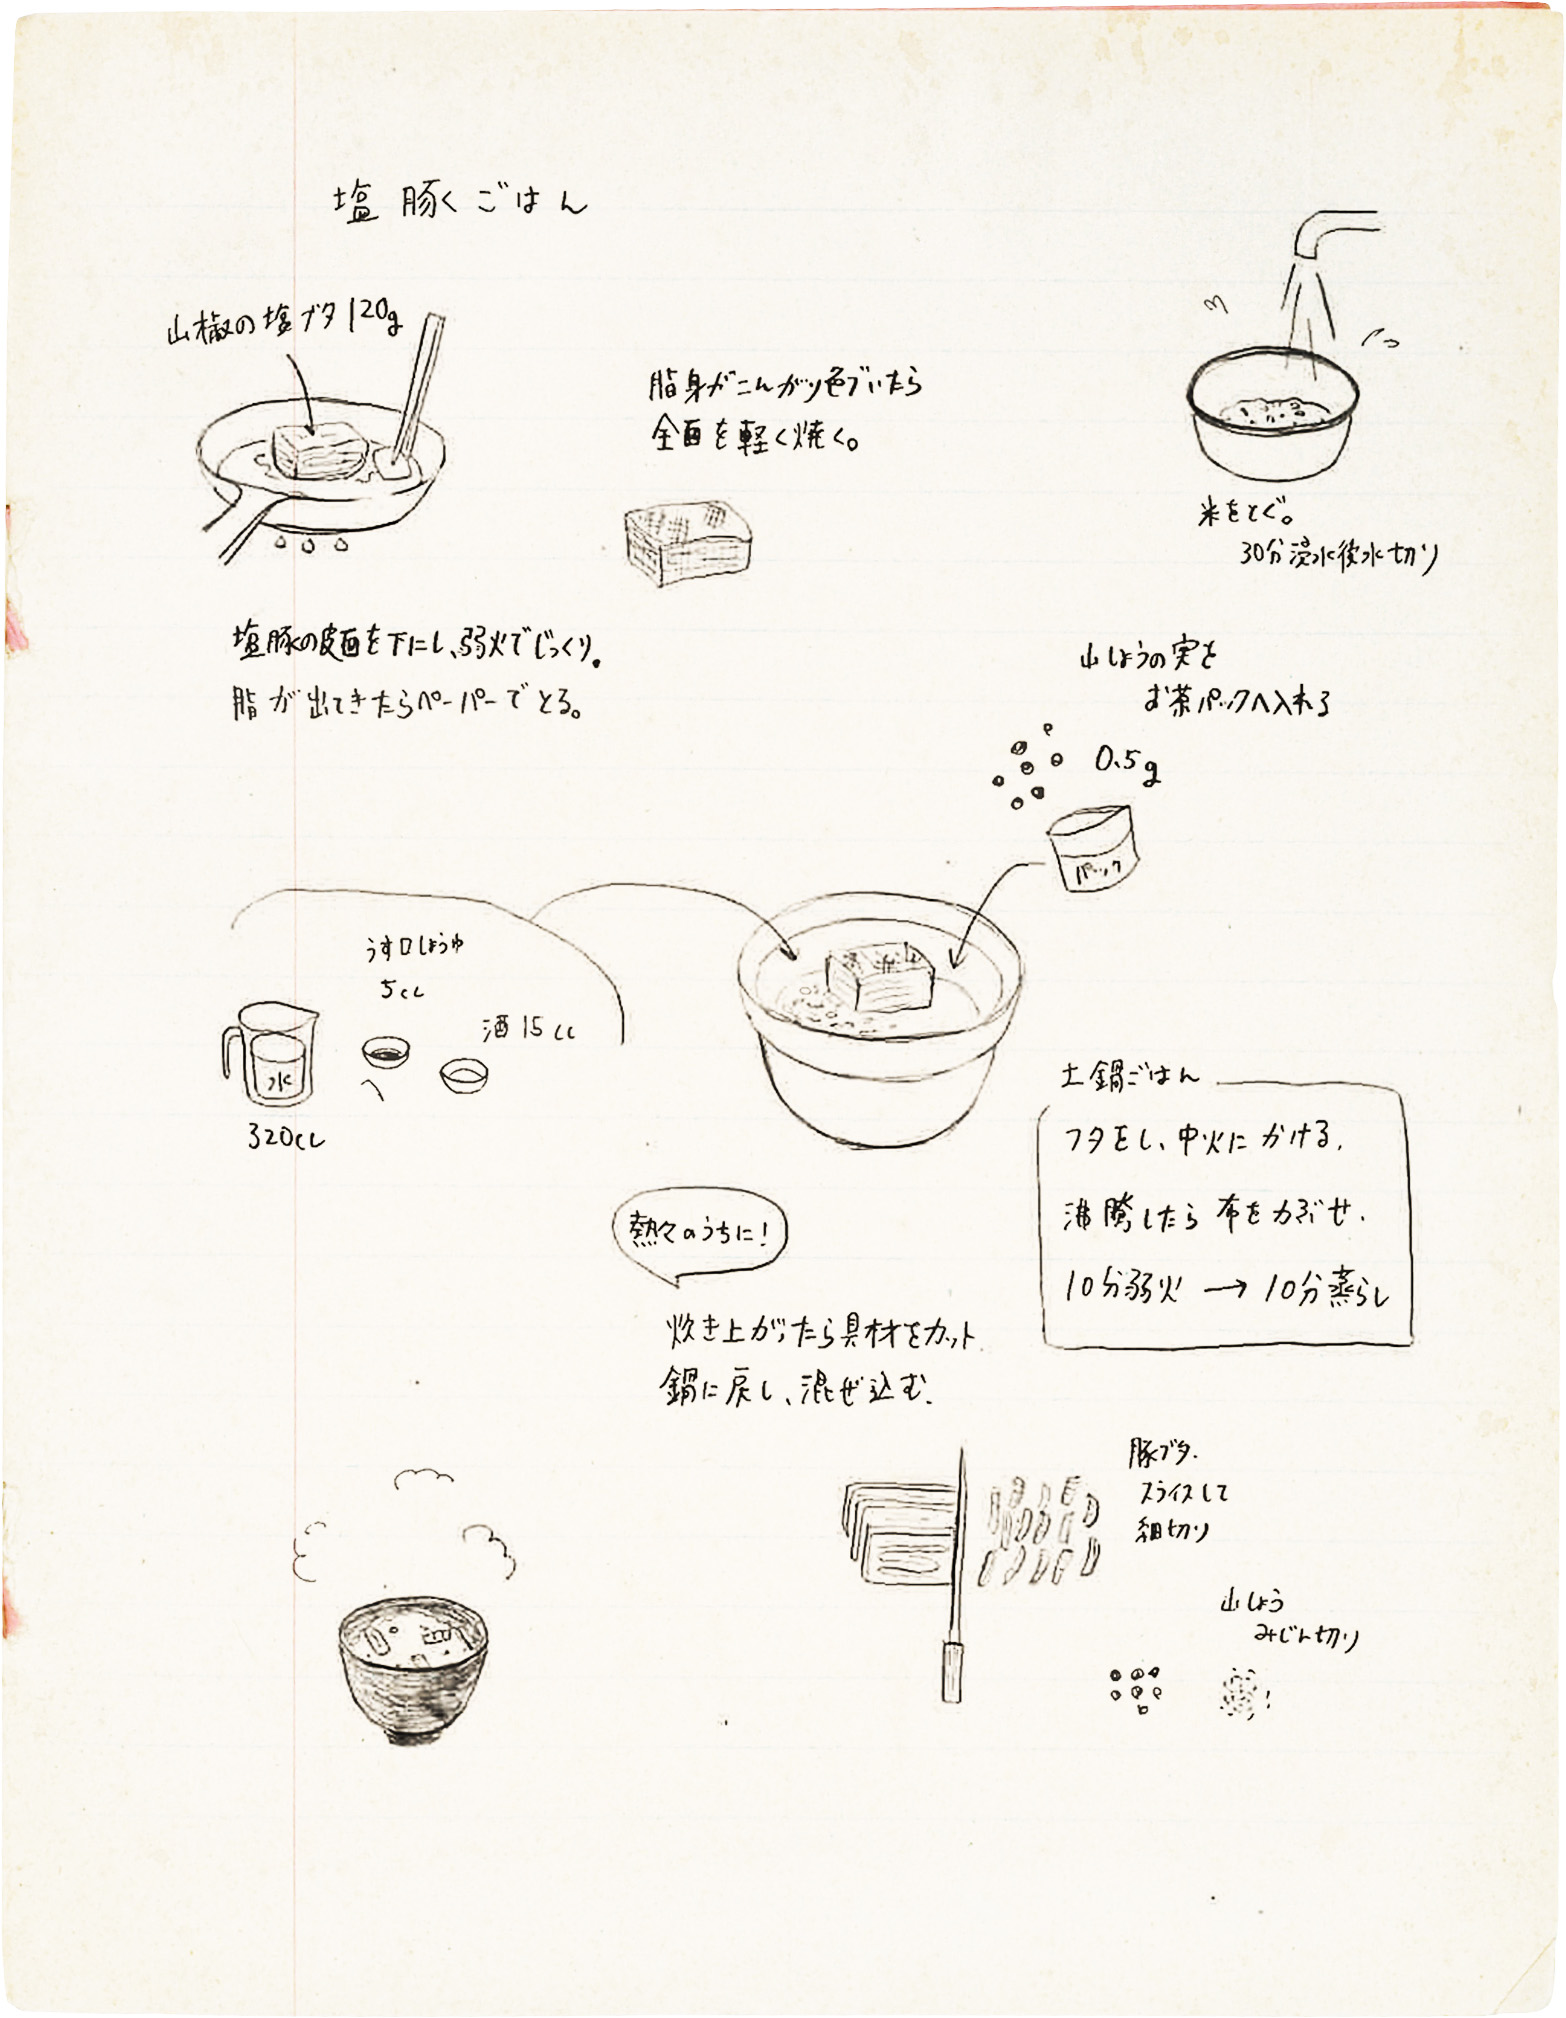 塩豚くごはん
山椒の塩ブタ120g
脂身がこんがり色づいたら
全面を軽く焼く。
米をとぐ。
30分浸水後水切り
塩豚の皮面を下にし、弱火でじっくり。
脂が出てきたらペーパーでとる。
山しょうの実を
お茶パックへ入れる
0.5g
パック
うす口しょうゆ
5cc
酒15cc
水
320cc
土鍋ごはん
フタをし、中火にかける。
沸騰したら布をかぶせ、
10分弱火→10分蒸らし
熱々のうちに!
炊き上がったら具材をカット
鍋に戻し、混ぜ込む。
豚ブタ.
スライスして
細切り
山しょう
みじん切り